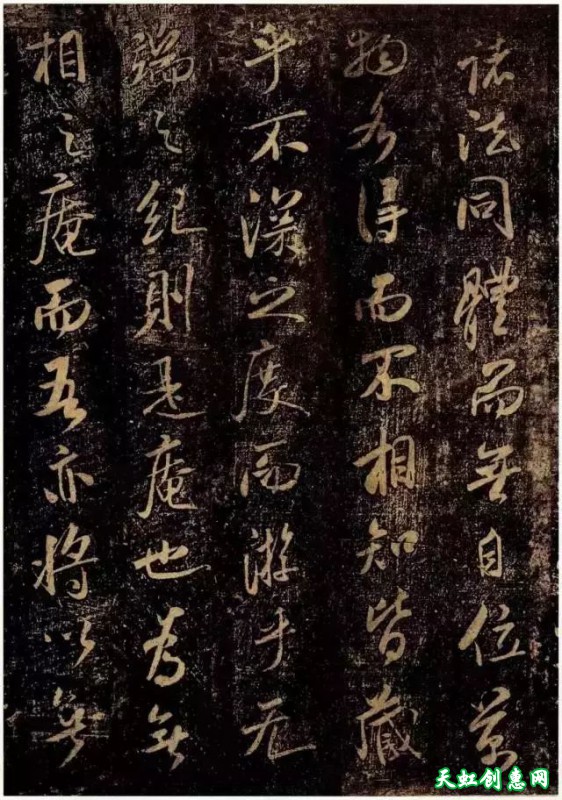 諸法同體而無自位萬
物各得而不相知皆藏
乎不深之度而游于无
端之紀則是庵也為無
相之庵而吾亦將以無
天虹创惠网